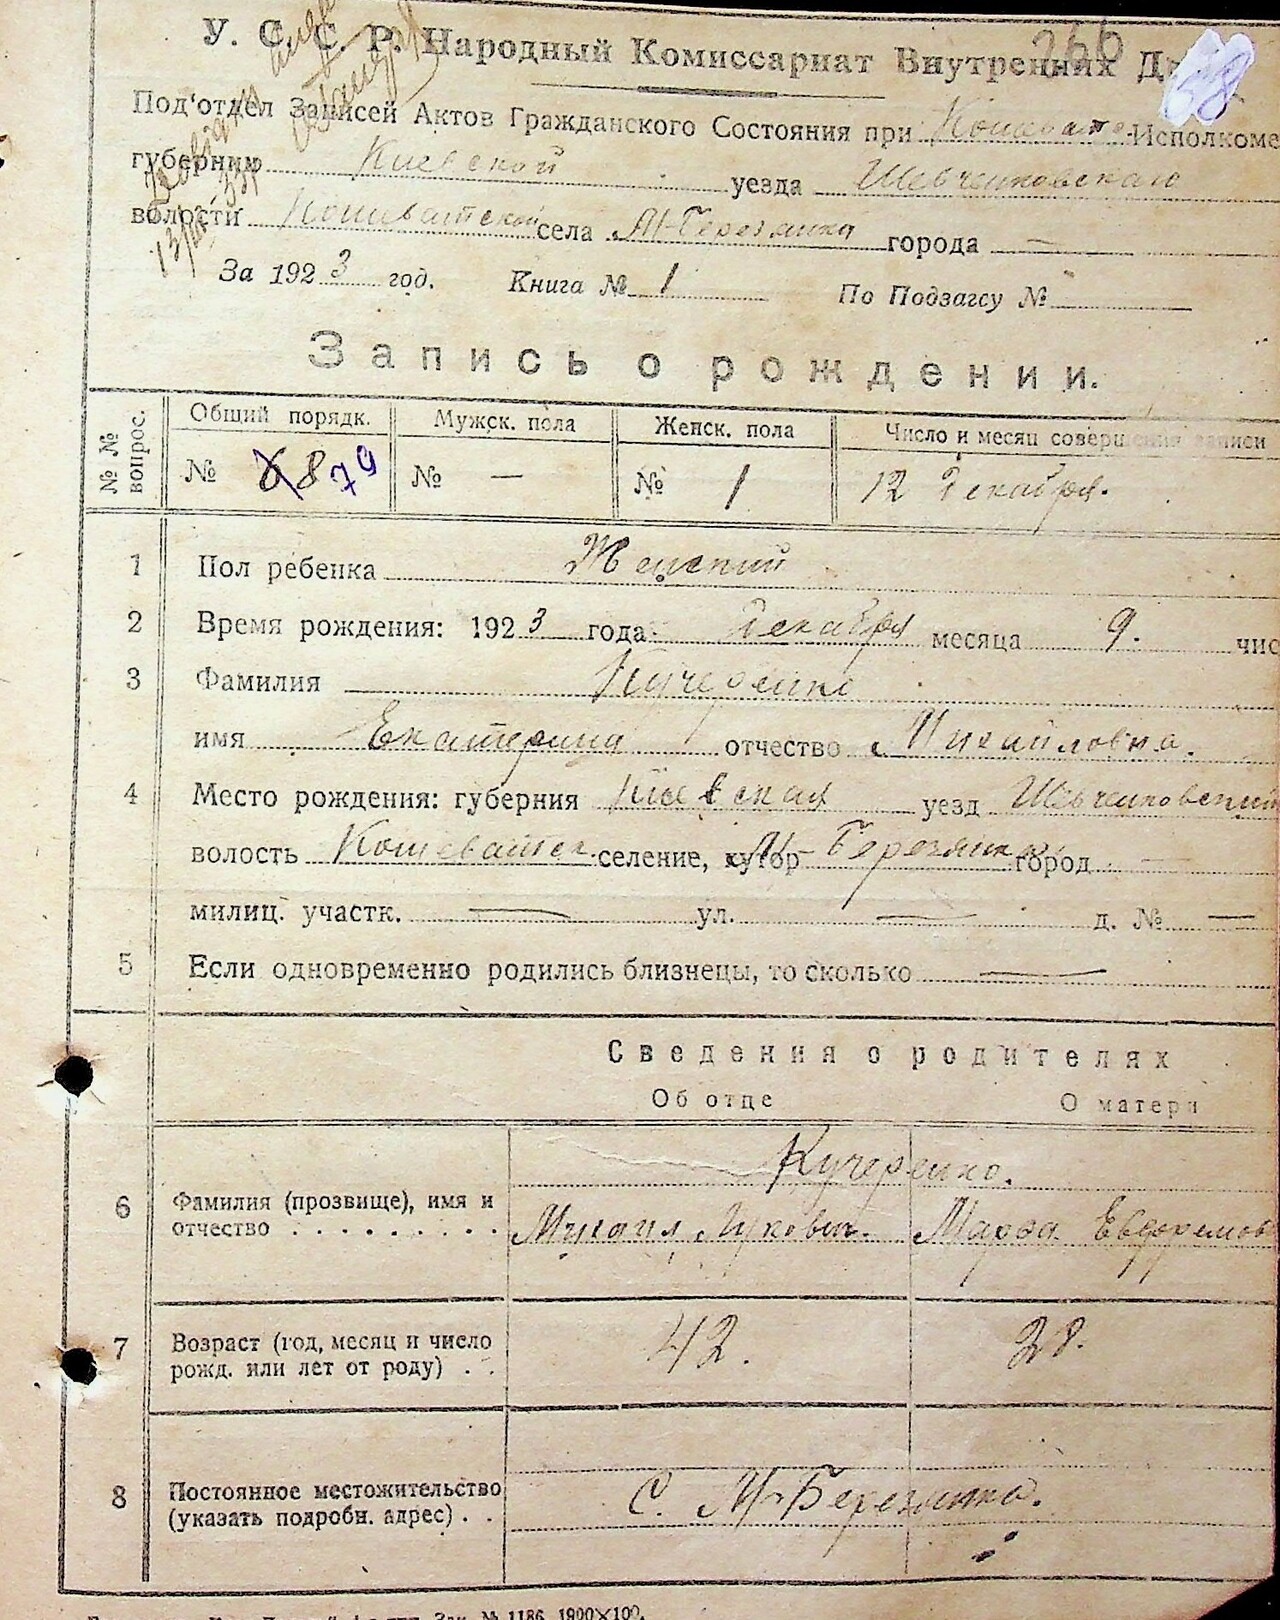 266
У. С. С. Р. Народный Комиссариат Внутренних
68
Под'отдел Записей Актов Гражданского Состояния при Кошеват. Исполкоме
губернии Киевской уезда Шевченковскаго
волости Кошеватской села М-Березянка города —
За 1923 год. Книга № 1 По Подзагсу №
Запись о рождении.
№ № вопрос. Общий порядк. Мужск. пола Женск. пола Число и месяц совершения записи
№ 8 79 № — № 1 12 декабря.
1 Пол ребенка Женский
2 Время рождения: 1923 года Декабря месяца 9. чис
3 Фамилия Кучеренко
имя Екатерина отчество Михайловна.
4 Место рождения: губерния Киевская уезд Шевченковский
волость Кошеватск. селение, хутор М-Березянка город —
милиц. участк. — ул. — д. № —
5 Если одновременно родились близнецы, то сколько —
Сведения о родителях
Об отце О матери
Кучеренко.
6 Фамилия (прозвище), имя и
отчество . . . . . . . . . Михаил Лукович. Марфа Ефремов
7 Возраст (год, месяц и число
рожд. или лет от роду) . . 42. 28.
8 Постоянное местожительство
(указать подробн. адрес) . . С. М-Березянка.
Зак. № 1186 1900×100.